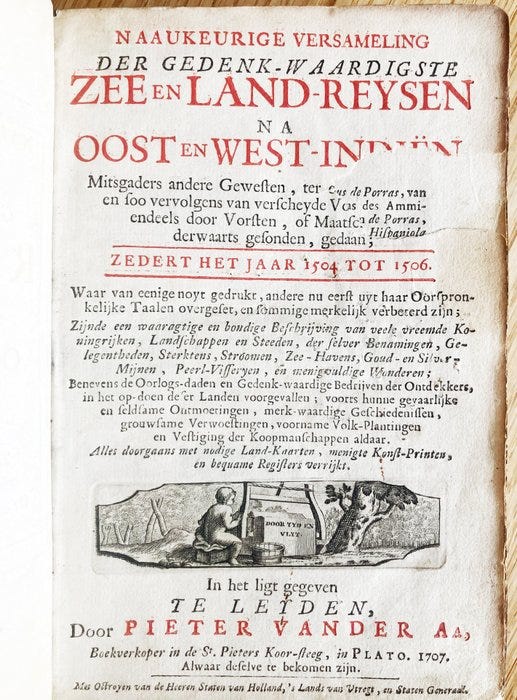 NAAUKEURIGE VERSAMELING
DER GEDENK-WAARDIGSTE
ZEE EN LAND-REYSEN
NA
OOST EN WEST-INDIËN
Mitsgaders andere Gewesten, ter
en soo vervolgens van verscheyde
endeels door Vorsten, of
derwaarts gesonden, gedaan;
de Porras, van
des Ammi-
de Porras,
Hispaniola
ZEDERT HET JAAR 1504 TOT 1506.
Waar van eenige noyt gedrukt, andere nu eerst uyt haar Oorspron-
kelijke Taalen overgeset, en sommige merkelijk verbetert zijn;
Zijnde een waaragtige en bondige Beschrijving van veele vreemde Ko-
ningrijken, Landschappen en Steeden, der selver Benamingen, Ge-
legentheden, Sterktens, Stroomen, Zee-Havens, Goud- en Silver-
Mijnen, Peerl-Visseryen, en menigvuldige Wonderen;
Benevens de Oorlogs-daden en Gedenk-waardige Bedrijven der Ontdekkers,
in het op-doen deser Landen voorgevallen; voorts hunne gevaarlijke
en seldsame Ontmoeringen, merk-waardige Geschiedenissen,
grouwsame Verwoestingen, voorname Volk-Plantingen
en Vestiging der Koopmanschappen aldaar.
Alles doorgaans met nodige Land-Kaarten, menigte Konst-Printen,
en bequame Registers verrijkt.
DOOR TYD EN
VLYT.
In het ligt gegeven
TE LEYDEN,
Door PIETER VANDER AA,
Boekverkoper in de St. Pieters Koor-steeg, in PLATO. 1707.
Alwaar deselve te bekomen zijn.
Met Octroyen van de Heeren Staten van Holland, 's Lands van Utregt, en Staten Generaal.